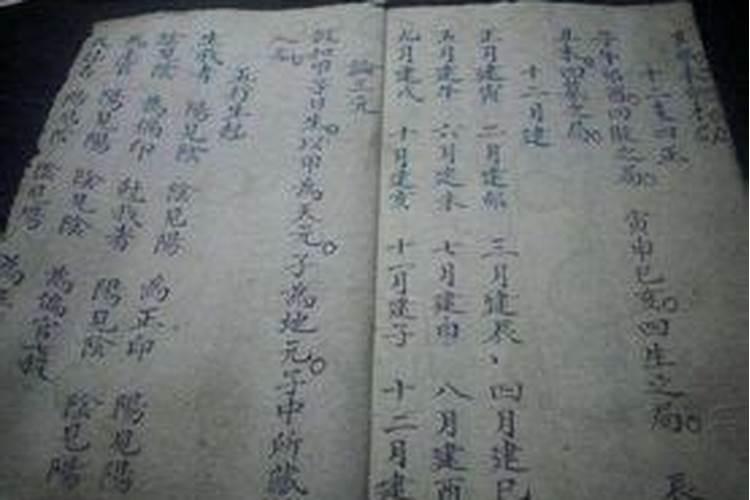 十二支四正
子午卯酉四敗之局 寅申巳亥四生之局 辰
丑未四墓之局
十二月建
正月建寅 二月建卯 三月建辰 四月建巳
五月建午 六月建未 七月建申 八月建酉
九月建戌 十月建亥 十一月建子 十二月建
論三元
假如甲子日生以甲為天元子為地元子中所藏
五行生尅
生我者 陽見陰 陰見陽 為正印 陽見陽
陰見陰 為偏印 尅我者 陽見陰 陰見陽
為正官 陽見陽 陰見陰 為偏官
陽見陰 陰見陽 為正